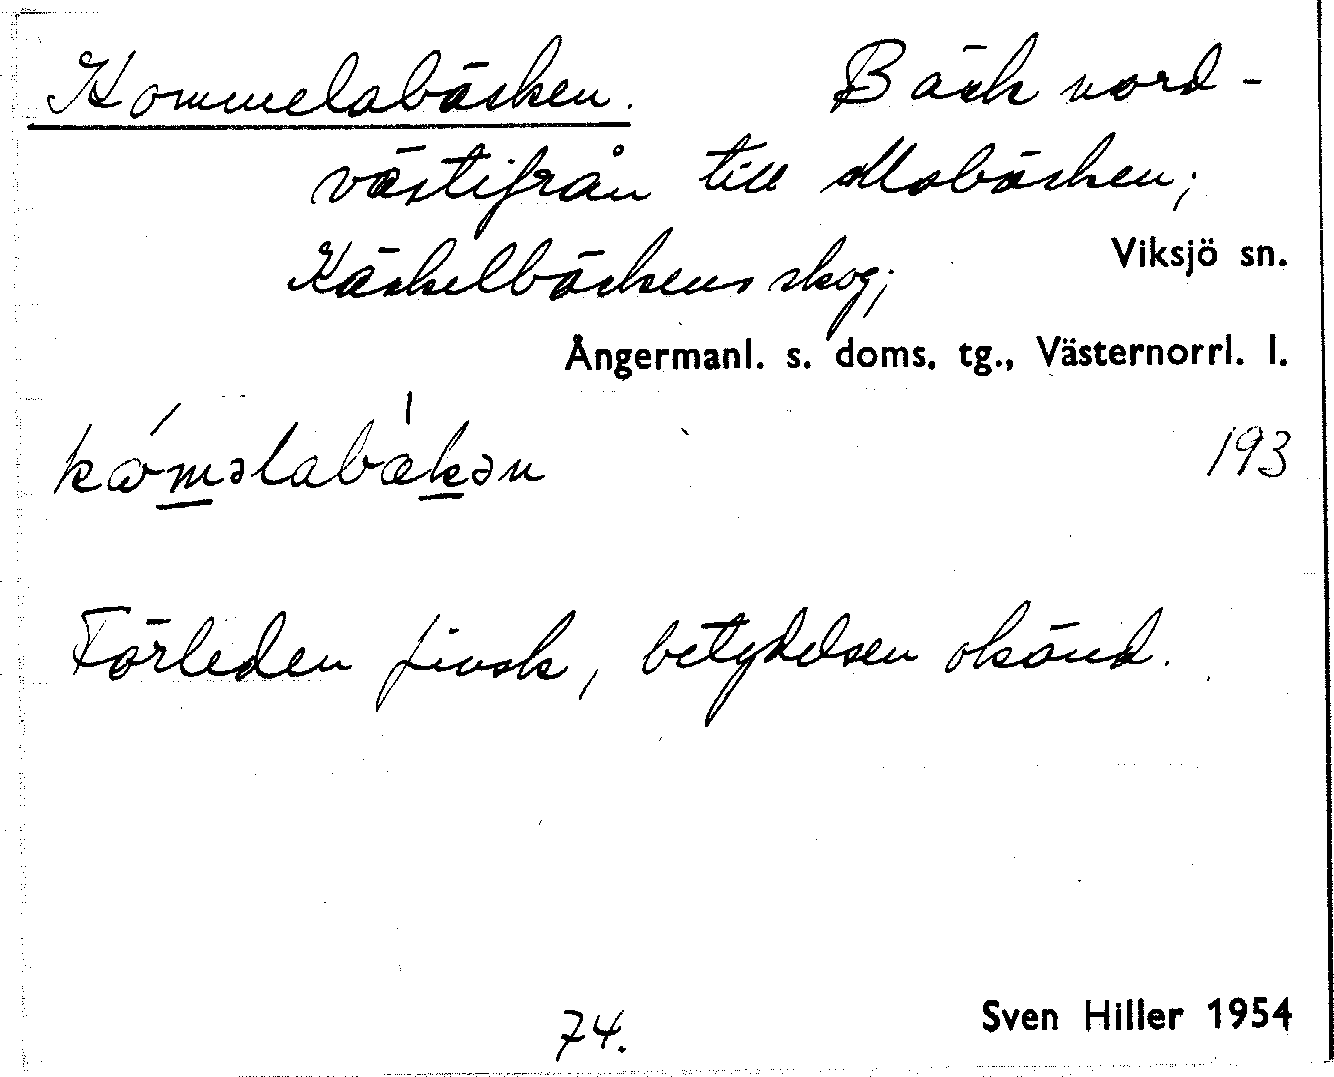 Kommelabäcken. Bäck nord-
västifrån till Mobäcken;
Käckelbäckens skog; Viksjö sn.
Ångermanl. s. doms. tg., Västernorrl. l.
kóməlabækən 193
Förleden finsk, betydelsen okänd.
74. Sven Hiller 1954